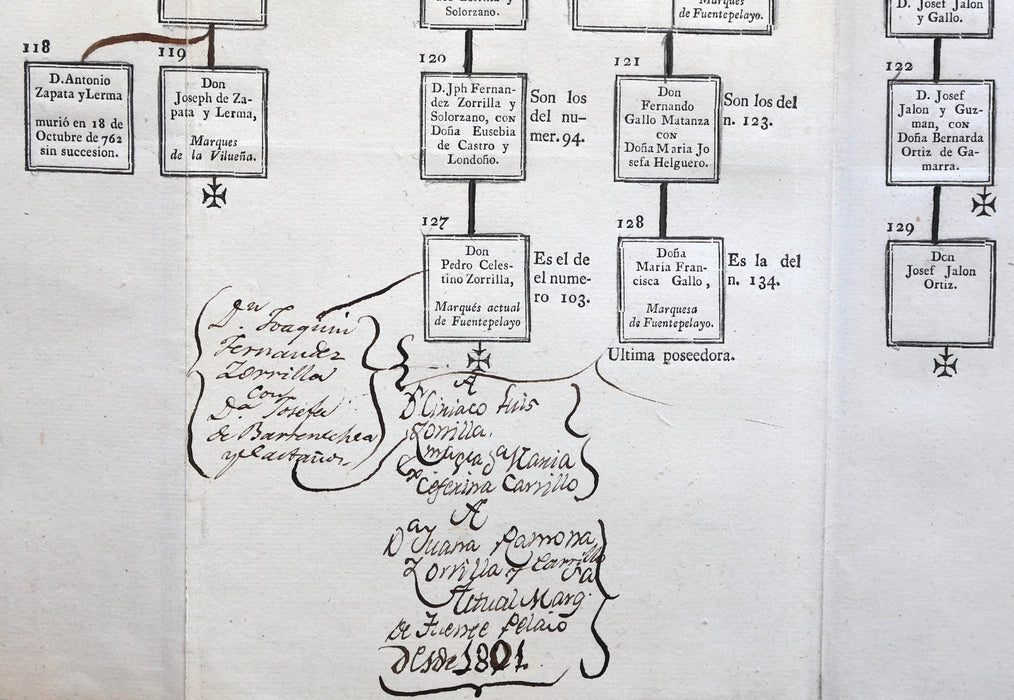 Solorzano.
Marques
de Fuentepelayo.
D. Josef Jalon
y Gallo.
118
D. Antonio
Zapata y Lerma
murió en 18 de
Octubre de 762
sin succesion.
119
Don
Joseph de Za-
pata y Lerma,
Marques
de la Vilueña.
120
D. Jph Fernan-
dez Zorrilla y
Solorzano, CON
Doña Eusebia
de Castro y
Londoño.
Son los
del nu-
mer. 94.
121
Don
Fernando
Gallo Matanza
CON
Doña Maria Jo
sefa Helguero.
Son los del
n. 123.
122
D. Josef
Jalon y Guz-
man, CON
Doña Bernarda
Ortiz de Ga-
marra.
127
Don
Pedro Celes-
tino Zorrilla,
Marqués actual
de Fuentepelayo
Es el de
el nume-
ro 103.
128
Doña
Maria Fran-
cisca Gallo,
Marquesa
de Fuentepelayo.
Es la del
n. 134.
Ultima poseedora.
129
Don
Josef Jalon
Ortiz.
Dn. Joaquin
Fernandez
Zorrilla
con
Da. Josefa
de Barrenechea
y Castaños.
A
Dn Ciriaco Luis
Zorrilla.
Maria
Ceferina Carrillo
A
Da Juana Ramona
Zorrilla y Carrillo
Actual Marq.sa
de Fuente Pelaio
Desde 1801.